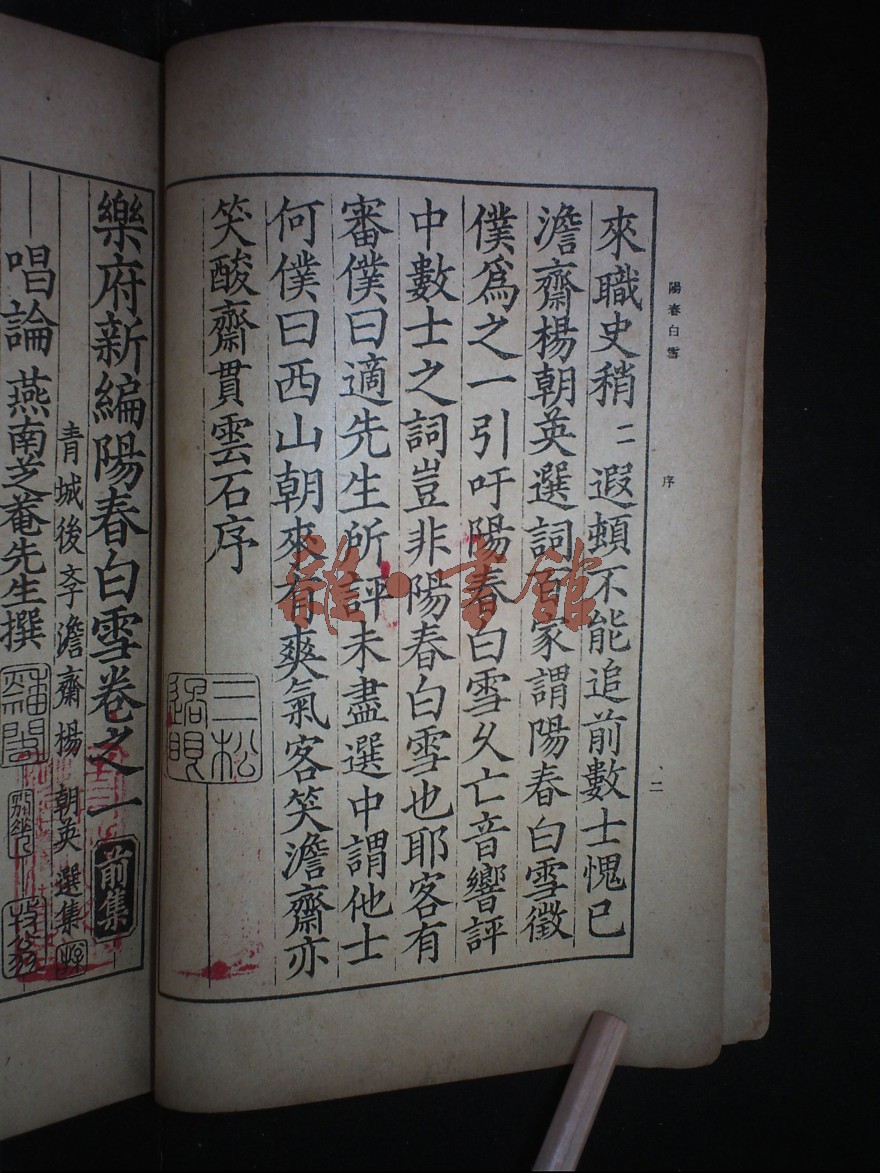 陽春白雪
序
二
來職史稍一二遐頓不能追前數士愧已
澹齋楊朝英選詞百家謂陽春白雪徵
僕爲之一引吁陽春白雪久亡音響評
中數士之詞豈非陽春白雪也耶客有
審僕曰適先生所評未盡選中謂他士
何僕曰西山朝來有爽氣客笑澹齋亦
笑酸齋貫雲石序
三松
過眼
樂府新編陽春白雪卷之一
前集
青城後李澹齋楊朝英選集
唱論
燕南芝菴先生撰
書館